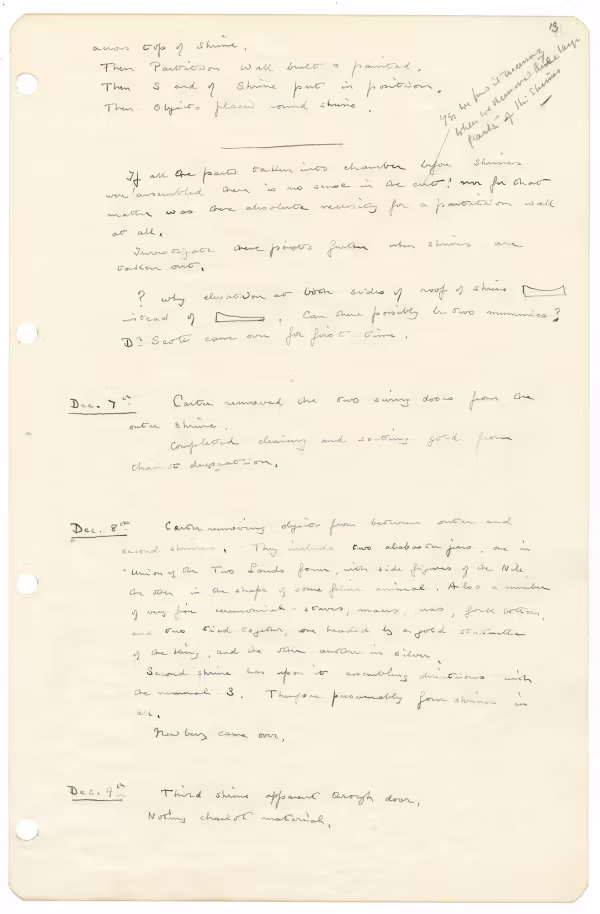 13
across top of shrine.
Then Partition Wall built & painted.
Then S end of Shrine put in position.
Then Objects placed round shrine.
Yes we find it necessary
when we remove these large
parts of the shrines
If all the parts taken into chamber before shrines
were assembled there is no sense in the cut! nor for that
matter was there absolute necessity for a partition wall
at all.
Investigate these points further when shrines are
taken out.
? Why elevation at both sides of roof of shrine
instead of . Can there possibly be two mummies?
Dr Scott came over for first time.
Dec. 7th Carter removed the two swing doors from the
outer shrine.
Completed cleaning and sorting gold from
chariot decoration.
Dec. 8th Carter removing objects from between outer and
second shrines. They include two alabaster jars, one in
"Union of the Two Lands form, with side figures of the Nile
the other in the shape of some feline animal. Also a number
of very fine ceremonial staves, maces, uas, fork bottom,
and two tied together, one headed by a gold statuette
of the King, and the other another in silver.
Second shrine has upon it assembling directions with
the numeral 3. Therefore presumably four shrines in
all.
Newberry came over.
Dec. 9th Third shrine apparent through door.
Noting chariot material.